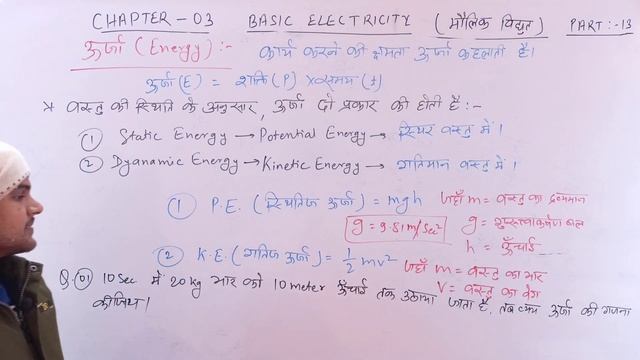 CHAPTER - 03 BASIC ELECTRICITY (मौलिक विद्युत) PART :- 13
ऊर्जा (Energy) :- कार्य करने की क्षमता ऊर्जा कहलाती है।
ऊर्जा (E) = शक्ति (P) × समय (t)
* वस्तु की स्थिति के अनुसार, ऊर्जा दो प्रकार की होती है :-
① Static Energy → Potential Energy → स्थिर वस्तु में।
② Dyanamic Energy → Kinetic Energy → गतिमान वस्तु में।
① P.E. (स्थितिज ऊर्जा) = mgh जहाँ m = वस्तु का द्रव्यमान
g = 9.81 m/Sec² g = गुरुत्वाकर्षण बल
h = ऊँचाई
② K.E. (गतिज ऊर्जा) = 1/2 mv² जहाँ m = वस्तु का भार
V = वस्तु का वेग
Q.01 10 Sec में 20 kg भार को 10 meter ऊँचाई तक उठाया जाता है, तब व्यय ऊर्जा की गणना
कीजिये।